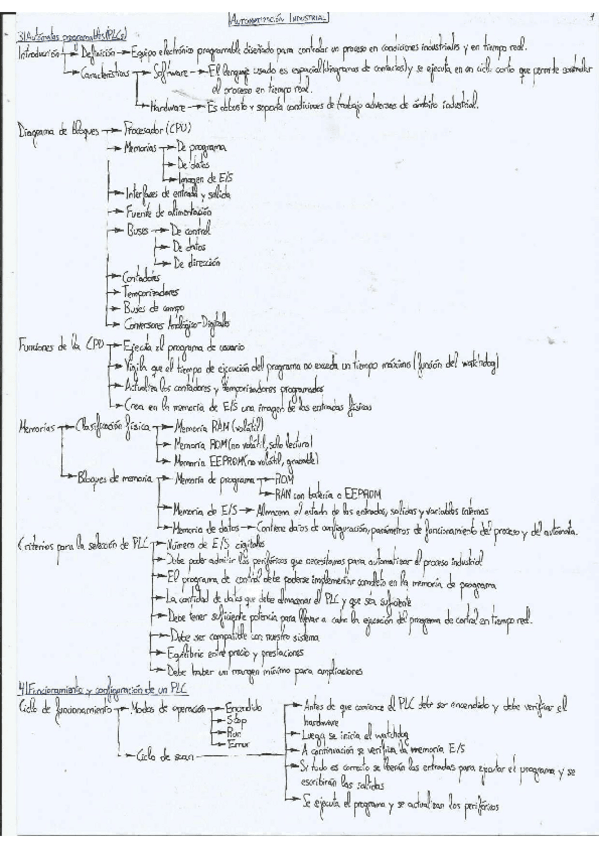 AUTOMATIZACIÓN INDUSTRIAL 1
3) Autómatas programables (PLCs)
Introducción → Definición → Equipo electrónico programable diseñado para controlar un proceso en condiciones industriales y en tiempo real.
→ Características → Software → El lenguaje usado es especial (diagramas de contactos) y se ejecuta en un ciclo corto que permite controlar
el proceso en tiempo real.
→ Hardware → Es robusto y soporta condiciones de trabajo adversas de ámbito industrial.
Diagrama de bloques → Procesador (CPU)
→ Memorias → De programa
→ De datos
→ Imagen de E/S
→ Interfases de entrada y salida
→ Fuente de alimentación
→ Buses → De control
→ De datos
→ De dirección
→ Contadores
→ Temporizadores
→ Buses de campo
→ Conversores Analógico-Digitales
Funciones de la CPU → Ejecuta el programa de usuario
→ Vigila que el tiempo de ejecución del programa no exceda un tiempo máximo (función del watchdog)
→ Actualiza los contadores y temporizadores programados
→ Crea en la memoria de E/S una imagen de las entradas físicas
Memorias → Clasificación física → Memoria RAM (volátil)
→ Memoria ROM (no volátil, solo lectura)
→ Memoria EEPROM (no volátil, grabable)
→ Bloques de memoria → Memoria de programa → ROM
→ RAM con batería o EEPROM
→ Memoria de E/S → Almacena el estado de las entradas, salidas y variables internas
→ Memoria de datos → Contiene datos de configuración, parámetros de funcionamiento del proceso y del autómata.
Criterios para la selección de PLC → Número de E/S digitales
→ Debe poder admitir los periféricos que necesitamos para automatizar el proceso industrial
→ El programa de control debe poderse implementar completo en la memoria de programa
→ La cantidad de datos que debe almacenar el PLC y que sea suficiente
→ Debe tener suficiente potencia para llevar a cabo la ejecución del programa de control en tiempo real.
→ Debe ser compatible con nuestro sistema
→ Equilibrio entre precio y prestaciones
→ Debe haber un margen mínimo para ampliaciones
4) Funcionamiento y configuración de un PLC
Ciclo de funcionamiento → Modos de operación → Encendido
→ Stop
→ Run
→ Error
→ Ciclo de scan → Antes de que comience el PLC debe ser encendido y debe verificar el
hardware
→ Luego se inicia el watchdog
→ A continuación se verifica la memoria E/S
→ Si todo es correcto se leerán las entradas para ejecutar el programa y se
escribirán las salidas
→ Se ejecuta el programa y se actualizan los periféricos